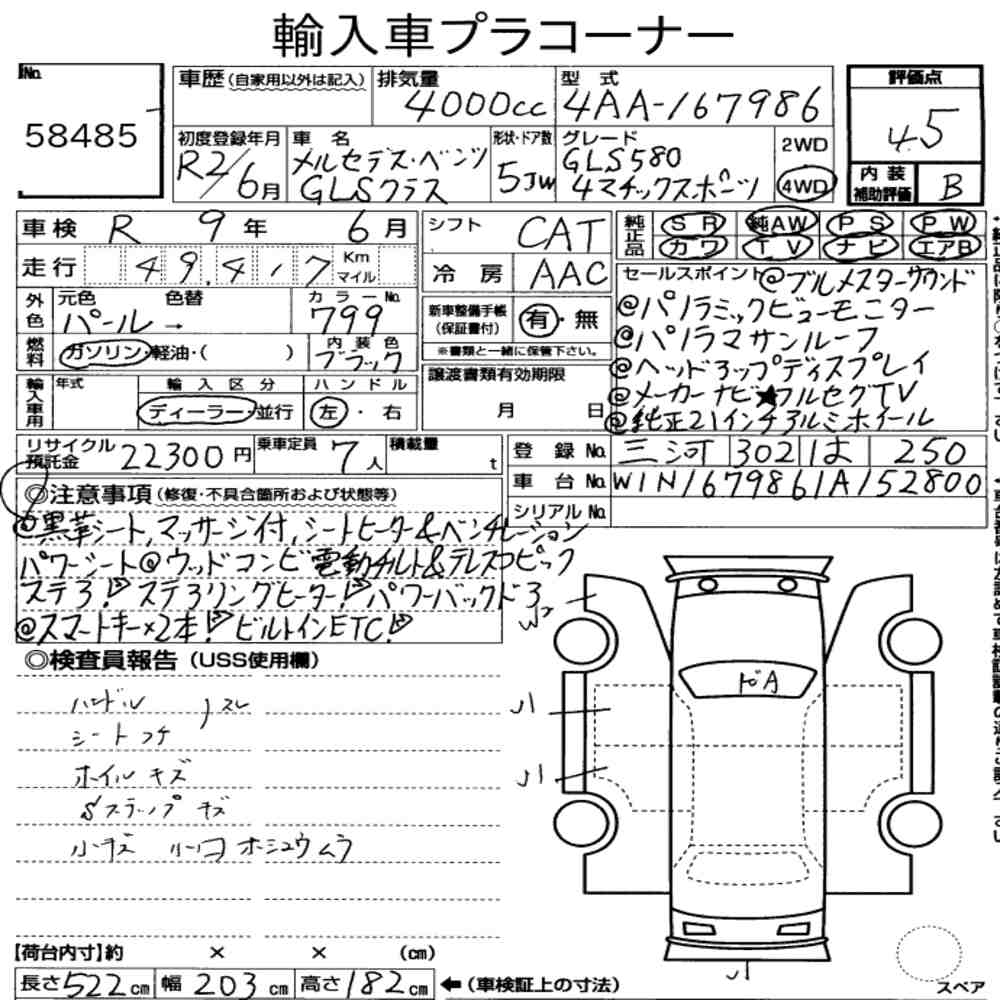 輸入車プラコーナー
No.
58485
車歴(自家用以外は記入)
排気量
4000cc
型 式
4AA-167986
評価点
4.5
初度登録年月
R2/6月
車 名
メルセデス・ベンツ
GLSクラス
形状・ドア数
5JW
グレード
GLS580
4マチックスポーツ
2WD
4WD
内 装
補助評価
B
車検 R 9年 6月
走行 49,417 Km マイル
外色 元色 色替
パール →
カラーNo.
799
燃料 ガソリン・軽油・( )
内装色
ブラック
輸入車用 年式
輸入区分
ディーラー・並行
ハンドル
左・右
シフト CAT
冷房 AAC
新車整備手帳
(保証書付) 有・無
※書類と一緒に保管下さい。
譲渡書類有効期限
月 日
純正品 SR 純AW PS PW
カワ TV ナビ エアB
セールスポイント @ブルメスターサウンド
@パノラミックビューモニター
@パノラマサンルーフ
@ヘッドアップディスプレイ
@メーカーナビ★フルセグTV
@純正21インチアルミホイール
リサイクル
預託金 22300円
乗車定員 7人
積載量 t
登録No. 三河 302 は 250
車台No. W1N1679861A152800
シリアルNo.
◎注意事項(修復・不具合箇所および状態等)
@黒革シート,マッサージ付,シートヒーター&ベンチレーション
パワーシート@ウッドコンビ 電動チルト&テレスコピック
ステア! ステアリングヒーター! パワーバックドア
@スマートキー×2本! ビルトインETC!
◎検査員報告(USS使用欄)
ハンドル スレ
シート
ホイルキズ
Sステップキズ
小キズ 小凹 ホシュウムラ
ドA
【荷台内寸】約 × × (cm)
長さ522cm 幅203cm 高さ182cm ←(車検証上の寸法)
スペア